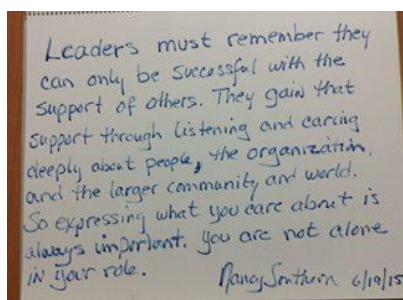 Leaders must remember they
can only be successful with the
support of others. They gain that
support through listening and caring
deeply about people, the organization,
and the larger community and world.
So expressing what you care about is
always important. You are not alone
in your role.
Nancy Southern 6/19/15